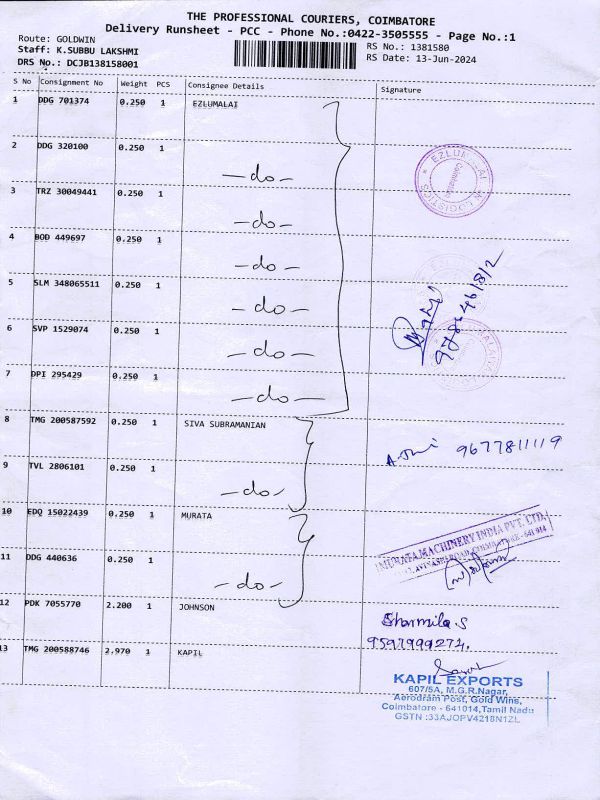 THE PROFESSIONAL COURIERS, COIMBATORE
Delivery Runsheet - PCC - Phone No.:0422-3505555 - Page No.:1
Route: GOLDWIN
RS No.: 1381580
Staff: K.SUBBU LAKSHMI
RS Date: 13-Jun-2024
DRS No.: DCJB138158001
S No Consignment No Weight PCS Consignee Details Signature
1 DDG 701374 0.250 1 EZLUMALAI
2 DDG 320100 0.250 1 -do-
3 TRZ 30049441 0.250 1 -do-
4 BOD 449697 0.250 1 -do-
5 SLM 348065511 0.250 1 -do-
6 SVP 1529074 0.250 1 -do-
7 DPI 295429 0.250 1 -do-
EZLUMALAI
LOGISTICS
8 TMG 200587592 0.250 1 SIVA SUBRAMANIAN
9677811119
9 TVL 2806101 0.250 1 -do-
10 EDQ 15022439 0.250 1 MURATA
MURATA MACHINERY INDIA PVT. LTD.
11 DDG 440636 0.250 1 -do-
12 PDK 7055770 2.200 1 JOHNSON
Sharmila.S
9597999274.
13 TMG 200588746 2.970 1 KAPIL
KAPIL EXPORTS
607/5A, M.G.R.Nagar,
Aerodram Post, Gold Wins,
Coimbatore - 641014,Tamil Nadu
GSTN :33AJOPV4218N1ZL